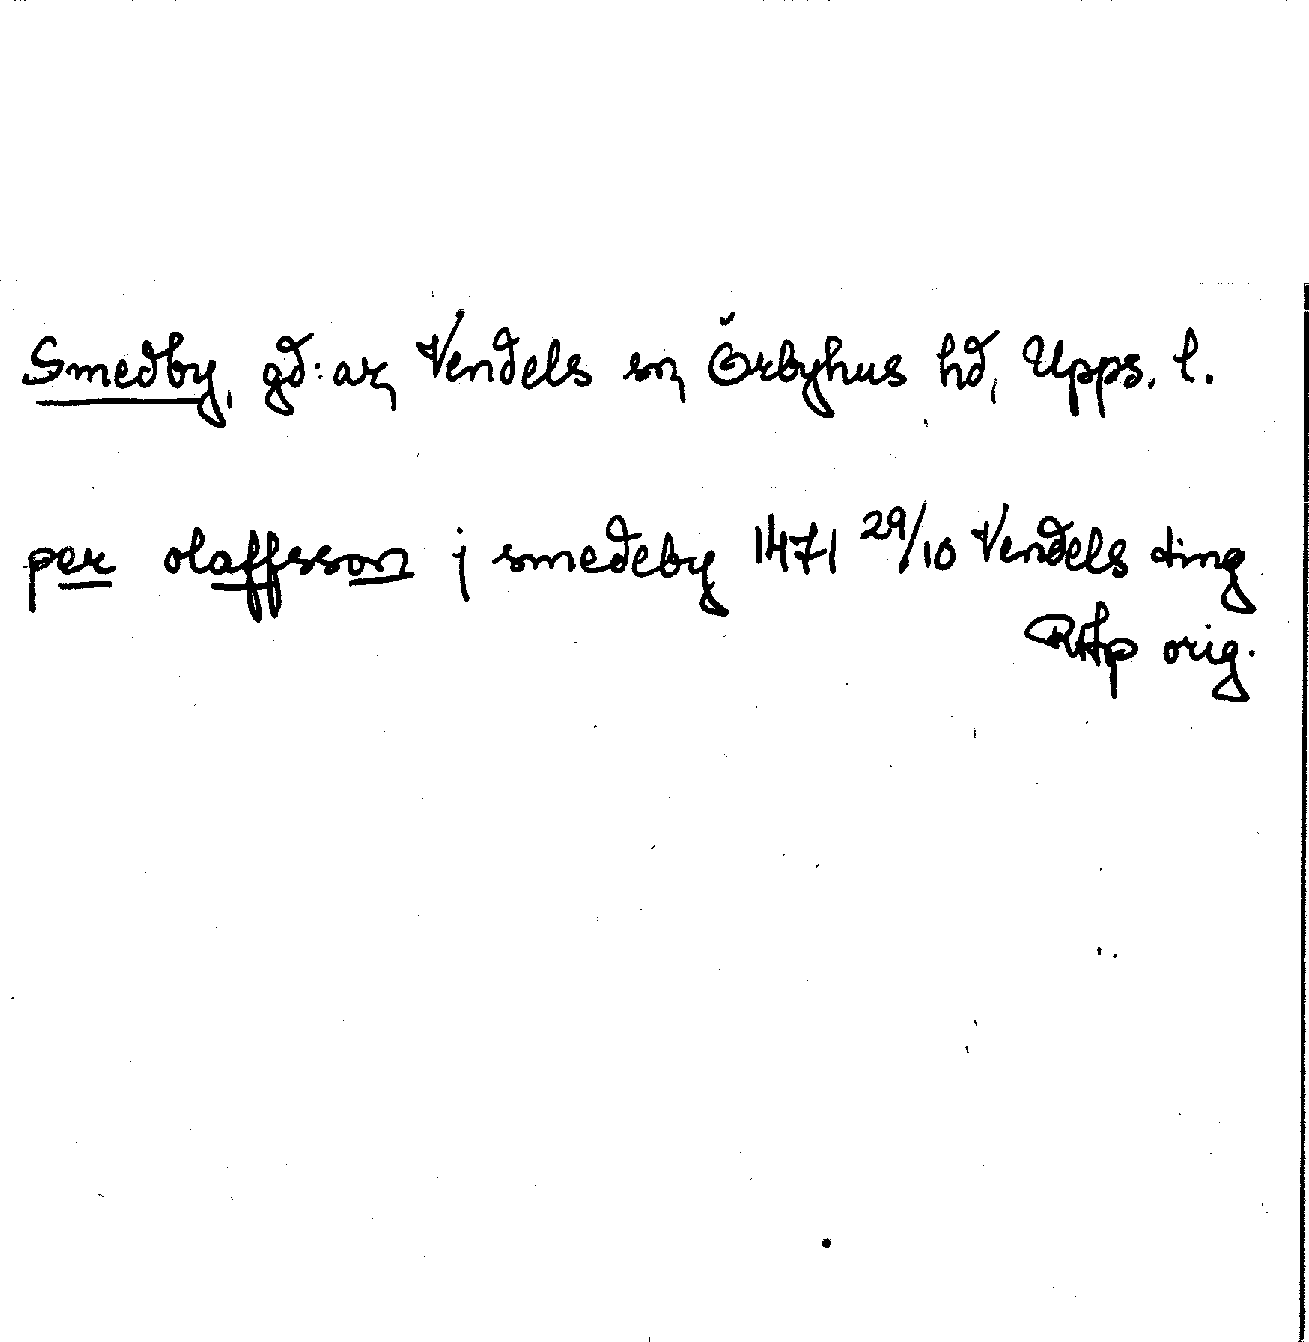 Smedby, gd:ar, Vendels sn, Örbyhus hd, Upps. l.
per olaffsson j smedeby 1471 29/10 Vendels ting
RAp orig.